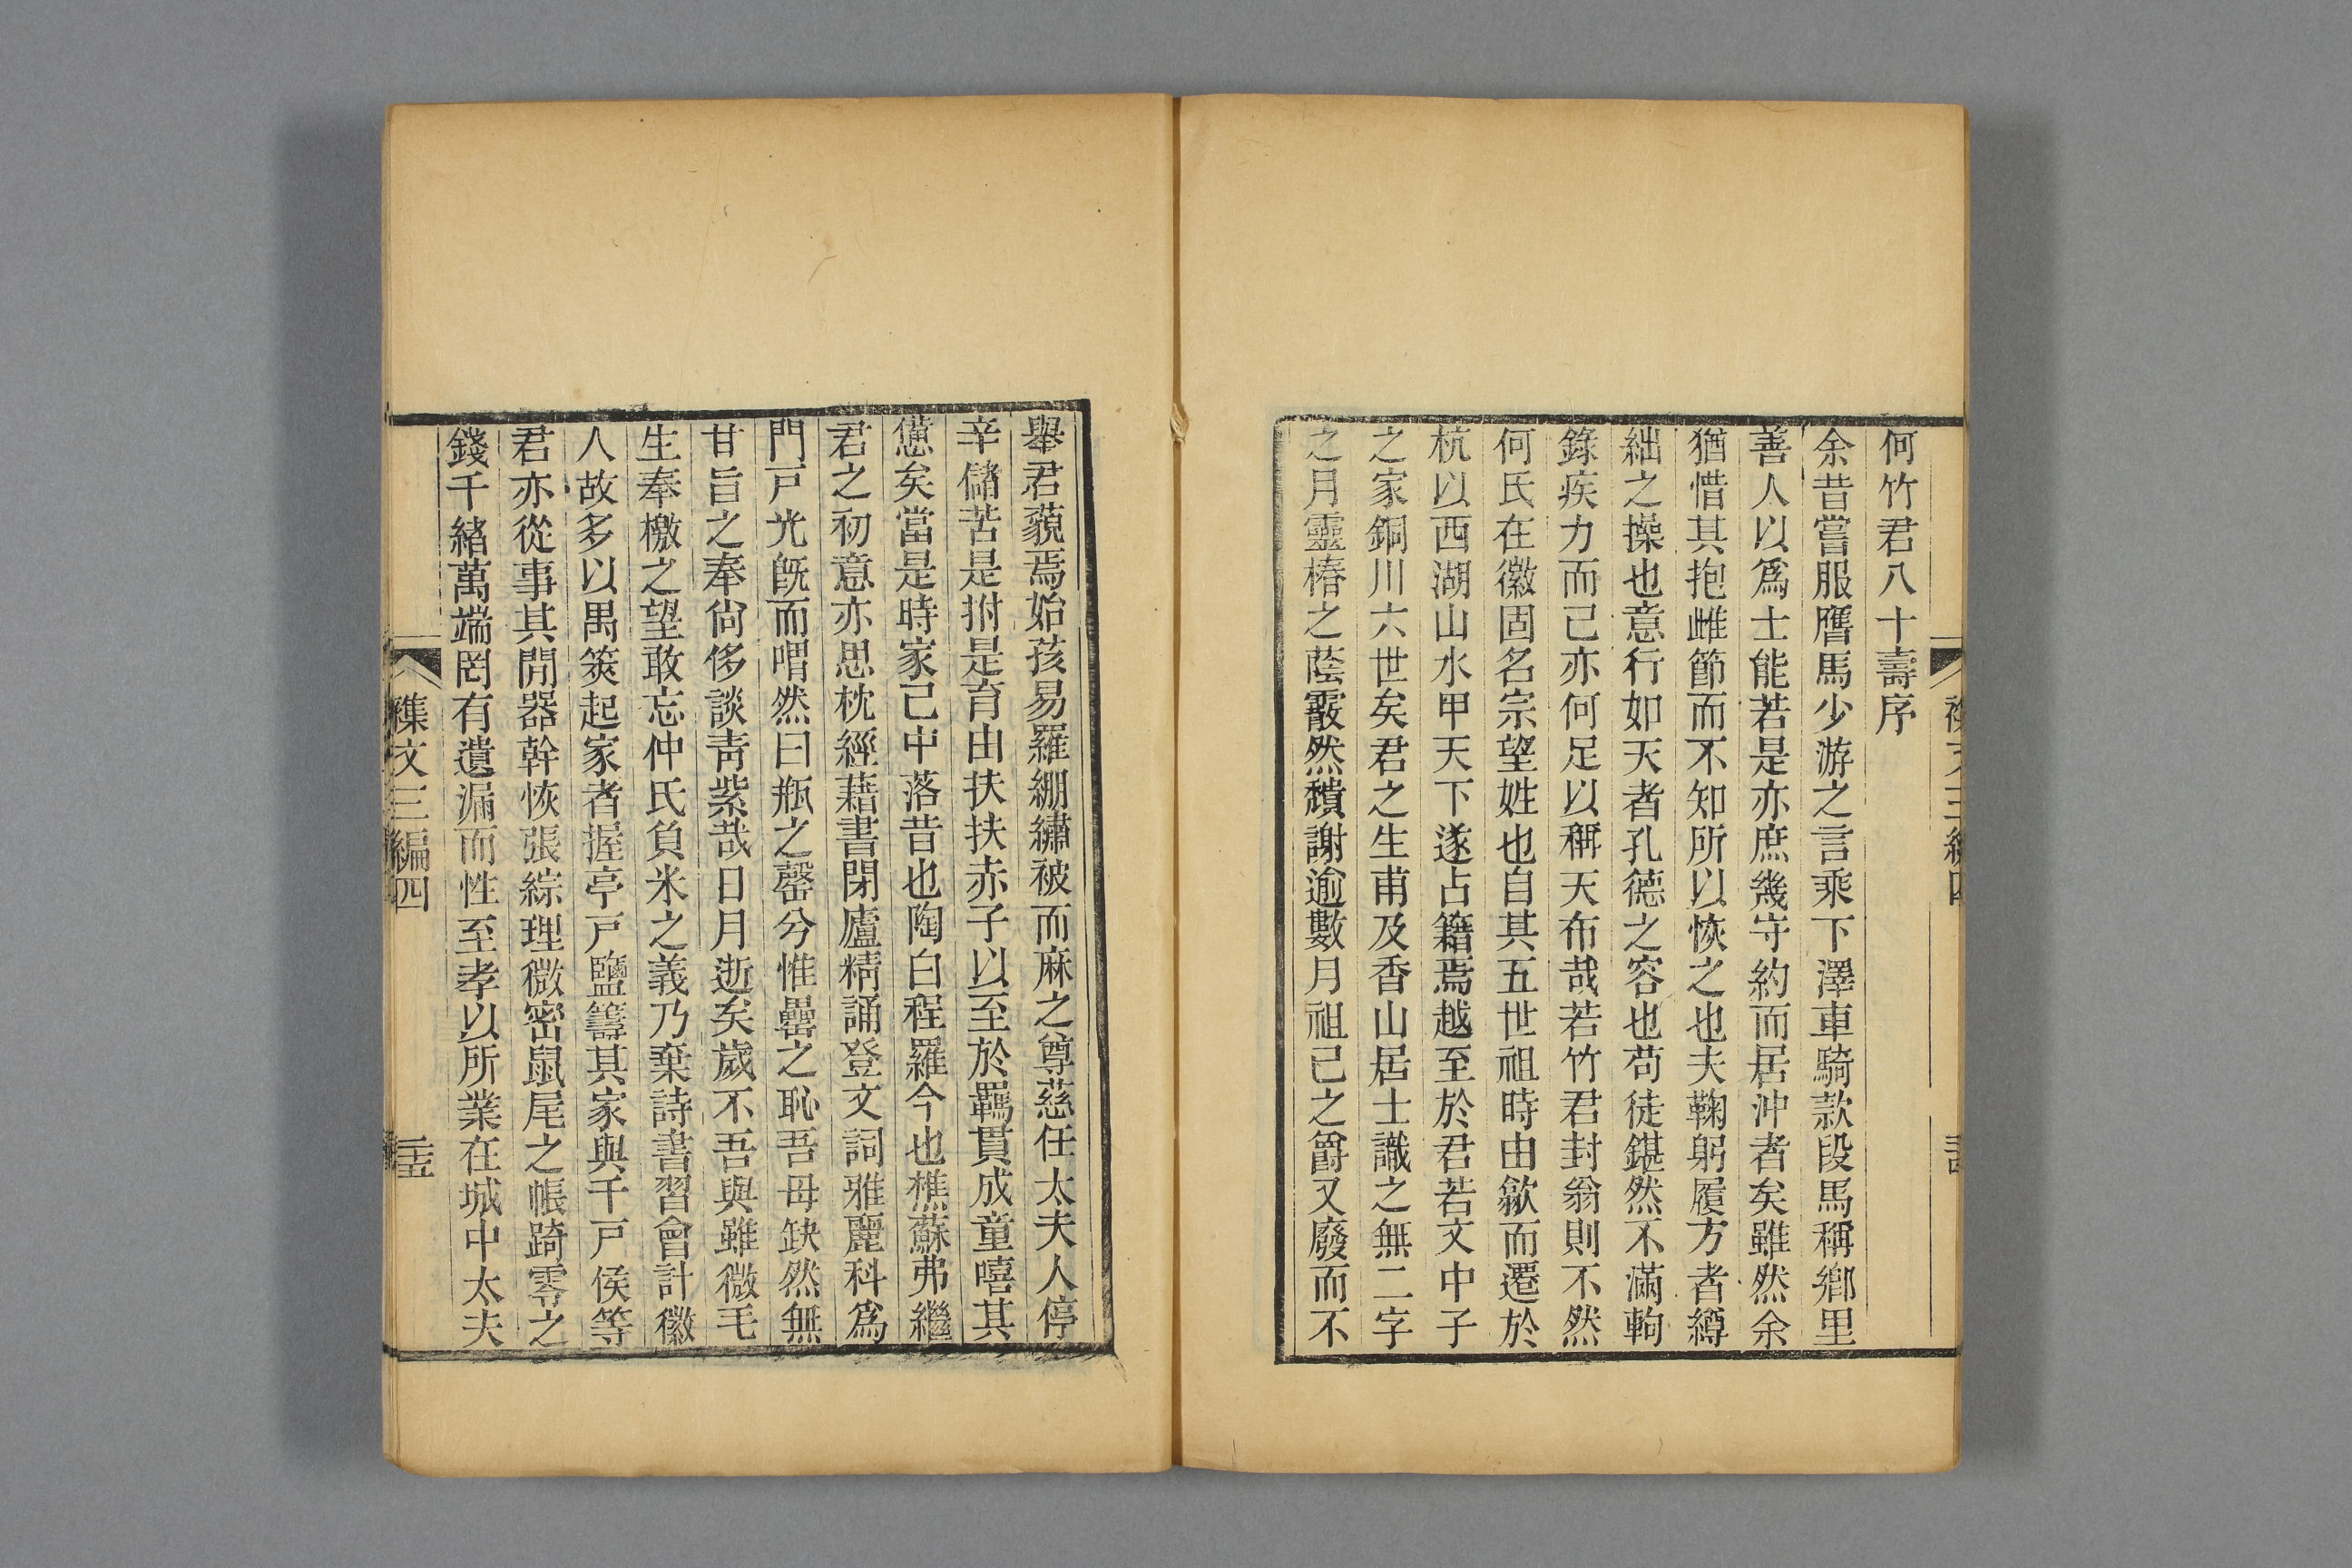 何竹君八十壽序
余昔嘗服膺馬少游之言乘下澤車騎款段馬稱鄉里
善人以爲士能若是亦庶幾守約而居沖者矣雖然余
猶惜其抱雌節而不知所以恢之也夫鞠躬履方者縛
絀之操也意行如天者孔德之容也苟徒鍖然不滿軥
錄疾力而已亦何足以稱天布哉若竹君封翁則不然
何氏在徽固名宗望姓也自其五世祖時由歙而遷於
杭以西湖山水甲天下遂占籍焉越至於君若文中子
之家銅川六世矣君之生甫及香山居士識之無二字
之月靈椿之蔭霰然穨謝逾數月祖己之爵又廢而不
舉君藐焉始孩易羅綳繡被而麻之尊慈任太夫人停
辛儲苦是拊是育由扶扶赤子以至於羈貫成童嘻其
憊矣當是時家已中落昔也陶白程羅今也樵蘇弗繼
君之初意亦思枕經藉書閉廬精誦登文詞雅麗科爲
門戸光旣而喟然曰瓶之罄兮惟罍之恥吾母缺然無
甘旨之奉尙侈談靑紫哉日月逝矣歲不吾與雖微毛
生奉檄之望敢忘仲氏負米之義乃棄詩書習會計徽
人故多以禺筴起家者握亭戸鹽籌其家與千戸侯等
君亦從事其閒器幹恢張綜理微密鼠尾之帳踦零之
錢千緒萬端罔有遺漏而性至孝以所業在城中太夫
襍文三編四